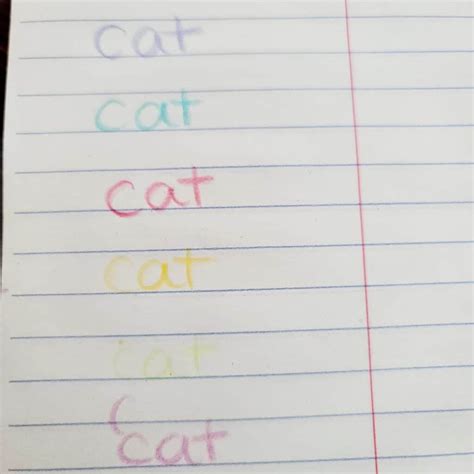 cat
cat
cat
cat
cat
cat